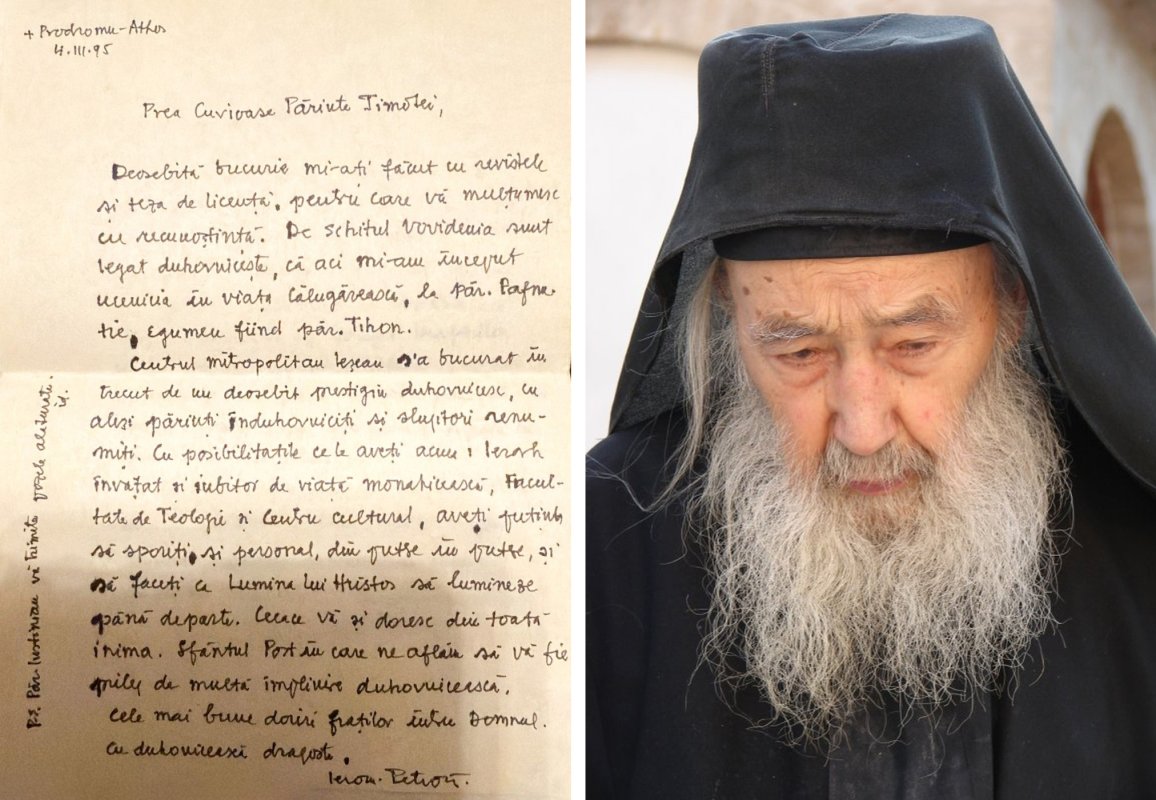 + Prodromu-Athos
4.III.95
Prea Cuvioase Părinte Timotei,
Deosebită bucurie mi-ați făcut cu revistele
și teza de licență, pentru care vă mulțumesc
cu recunoștință. De schitul Vovidenia sunt
legat duhovnicește, că aci mi-am început
ucenicia în viața călugărească, la păr. Pafnu-
tie, egumen fiind păr. Tihon.
Centrul mitropolitan ieșean s'a bucurat în
trecut de un deosebit prestigiu duhovnicesc, cu
aleși părinți înduhovniciți și slujitori renu-
miți. Cu posibilitățile ce le aveți acum: Ierarh
învățat și iubitor de viață monahicească, Facul-
tate de Teologie și Centru cultural, aveți putință
să sporiți, și personal, din putere în putere, și
să faceți ca Lumina lui Hristos să lumineze
până departe. Ceeace vă și doresc din toată
inima. Sfântul Post în care ne aflăm să vă fie
prilej de multă împlinire duhovnicească.
Cele mai bune doriri fraților întru Domnul.
Cu duhovnicească dragoste,
Ierom. Petroniu.
P.S. Păr. Iustinian vă trimite pozele alăturate.
id.